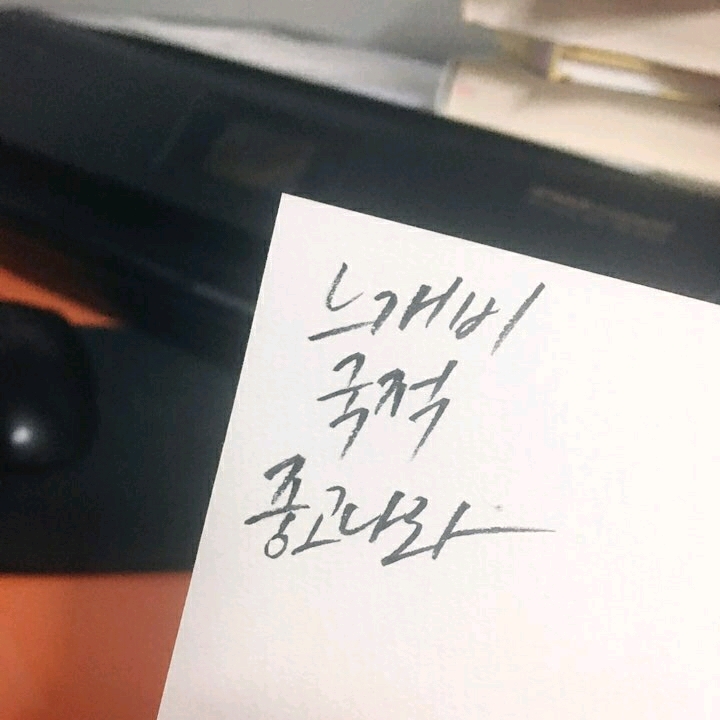 느개비
국적
중고나라